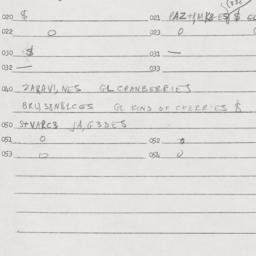 020 $ 021
022 0 023 0
030 $ 031 —
032 — 033
040 ZARAVI,NES GL CRANBERRIES
BRUS3NBICGS GL KIND OF CHERRIES $
050 STVARC3 JA,G3DES
051 0 052
053 0 054 0